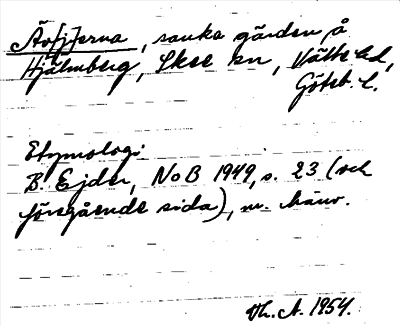 Äo[j]erna, sanka gärden å
Hjälmberg, Skee sn, Vätte hd,
Göteb. l.
Etymologi
B. Ejder, NoB 1949, s. 23 (och
föregående sida), m. hänv.
Vh. A. 1954.